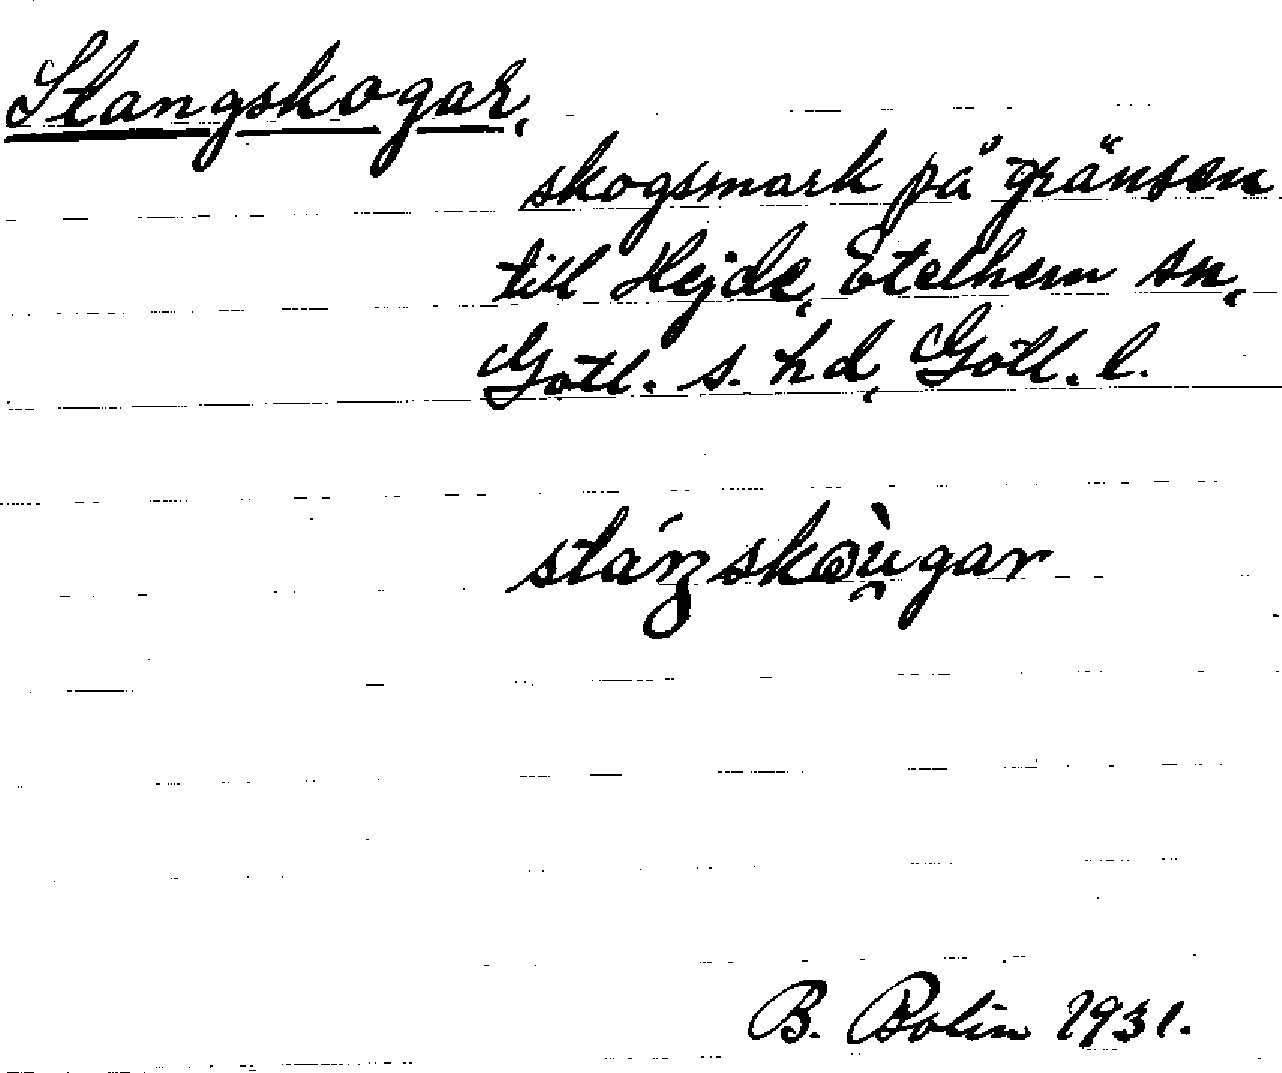 Stangskogar,
skogsmark på gränsen
till Hejde, Etelhem sn,
Gotl. s. hd, Gotl. l.
B. Bolin 1931.